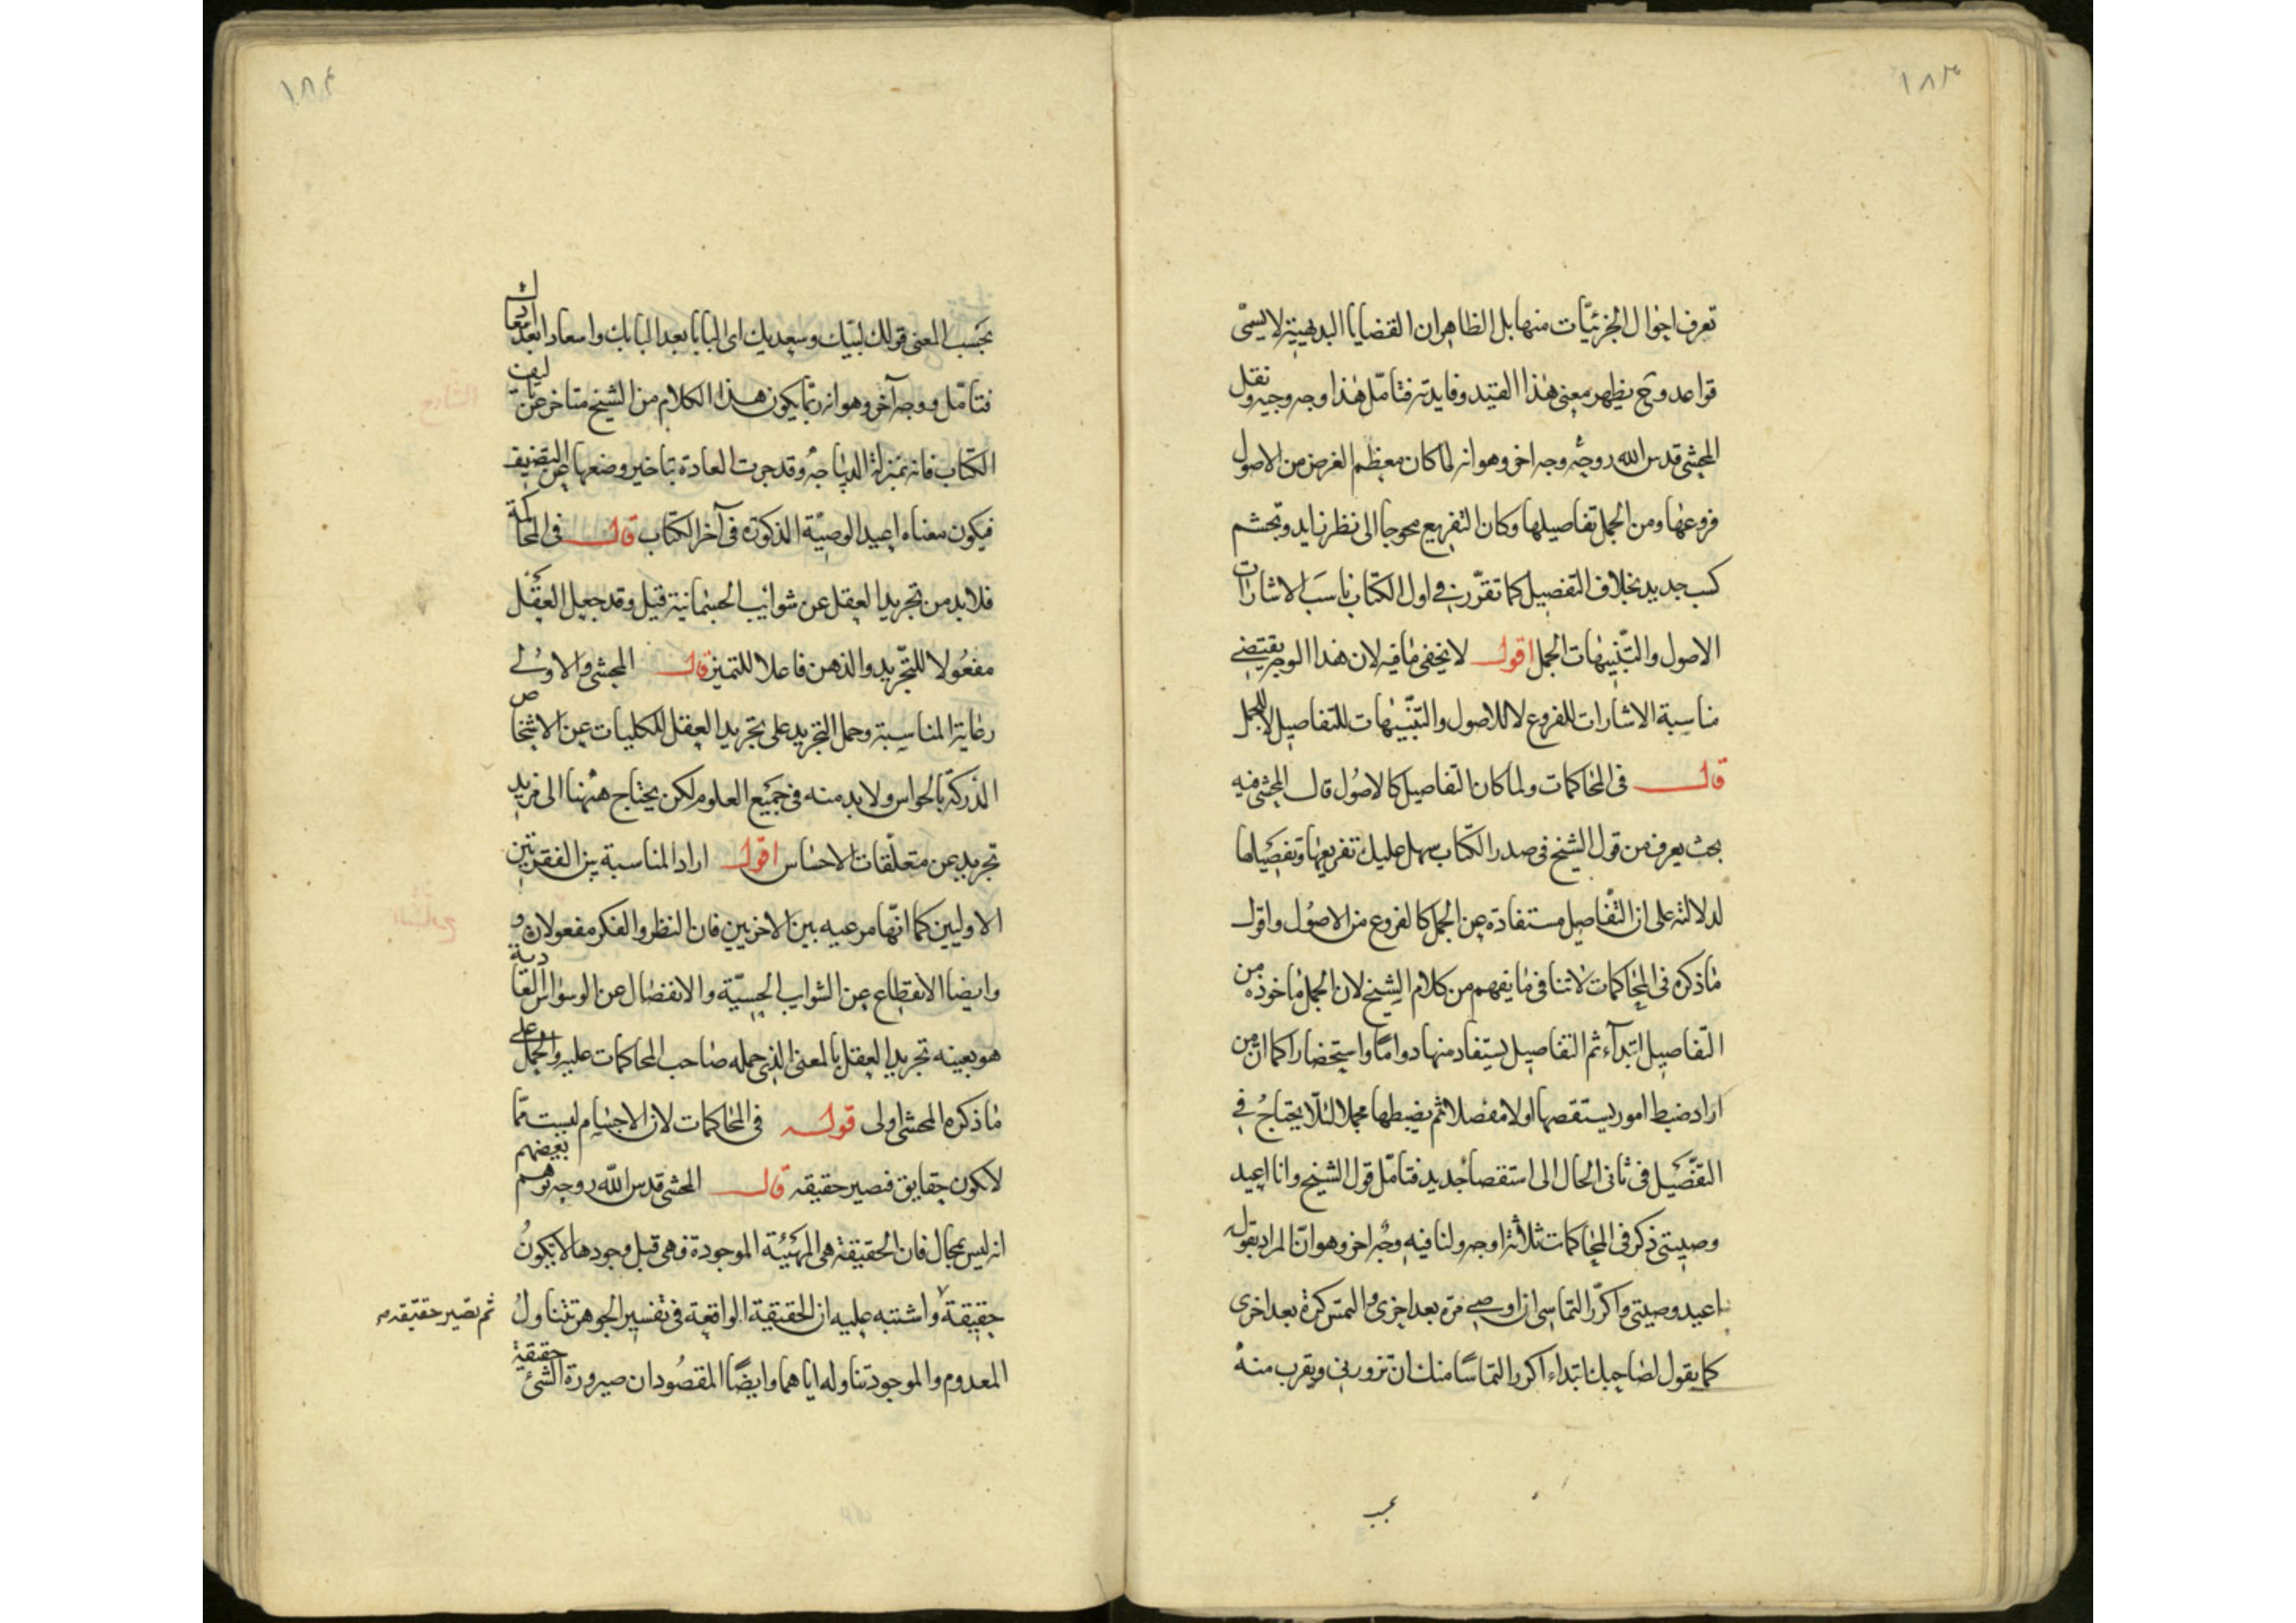 ١٨٣
تعرف احوال الجزئيّات منها بل الظاهر ان القضايا البديهية لا يسمّى
قواعد وح يظهر معنى هذا القيد وفايدته فتامّل هذا وجه وجيه ونقل
المحشى قدس الله روحه وجه اخر وهو انه لما كان معظم الغرض من الاصول
فروعها ومن الجمل تفاصيلها وكان التفريع محوجا الى نظر زايد وتجشم
كسب جديد بخلاف التفصيل كما تقرّر فى اول الكتاب ناسب الاشارات
الاصول والتنبيهات الجمل اقول لا يخفى ما فيه لان هذا الوجه يقتضى
مناسبة الاشارات للفروع لا للاصول والتنبيهات للتفاصيل لا للجمل
قال فى المحاكمات ولما كان التفاصيل كالاصول قال المحشى فيه
بحث يعرف من قول الشيخ فى صدر الكتاب سهل عليك تفريعها وتفصيلها
لدلالته على ان التفاصيل مستفادة عن الجمل كالفروع من الاصول واقول
ما ذكره فى المحاكمات لا تنافى ما يفهم من كلام الشيخ لان الجمل ماخوذه من
التفاصيل ابتدآء ثم التفاصيل يستفاد منها دواما واستحضارا كما ان من
اراد ضبط امور يستقصها اولا مفصلا ثم يضبطها مجملا لئلا يحتاج فى
التفصيل فى ثانى الحال الى استقصا جديد فتامّل قول الشيخ وانا اعيد
وصيتى ذكر فى المحاكمات ثلاثة اوجه ولنا فيه وجه اخر وهو انّ المراد بقوله
اعيد وصيتى واكرّر التماسى ان اوصى مرة بعد اخرى والتمس كرة بعد اخرى
كما يقول لصاحبك ابتداء اكرر التماسًا منك ان تزورنى ويقرب منه
بحسب
١٨٤
بحسب المعنى قولك لبّيك وسعديك اى البابا بعد الباب واسعادا بعد اسعاد
فتامّل ووجه آخر وهو انه ربّما يكون هذا الكلام من الشيخ متاخر عن تاليف
الكتاب فانه بمنزلة الديباجة وقد جرت العادة بتاخير وضعها عن التصنيف
فيكون معناه اعيد الوصيّة المذكورة فى آخر الكتاب قال فى المحاكمة
فلا بد من تجريد العقل عن شوائب الجسمانية قيل وقد جعل العقل
مفعولا للتجريد والذهن فاعلا للتميز قال المحشى والاولى
رعاية المناسبة وحمل التجريد على تجريد العقل للكليات عن الاشخاص
المدركة بالحواس ولا بد منه فى جميع العلوم لكن يحتاج ههنا الى مزيد
تجريد عن متعلّقات الاحساس اقول اراد المناسبة بين الفقرتين
الاوليين كما انّها مرعيه بين الاخريين فان النظر والفكر مفعولان و
وايضا الانقطاع عن الشوايب الحسيّة والانفصال عن الوسواس العادية
هو بعينه تجريد العقل بالمعنى الذى حمله صاحب المحاكمات عليه والحمل على
ما ذكره المحشى اولى قوله فى المحاكمات لان الاجسام ليست ممّا
لا تكون حقايق فتصير حقيقه قال المحشى قدس الله روحه توهم بعضهم
انه ليس بمجال فان الحقيقة هى المهيّة الموجودة فهى قبل وجودها لا يكون
حقيقة واشتبه عليه ان الحقيقة الواقعة فى تفسير الجوهر تتناول
ثم تصير حقيقه
المعدوم والموجود تناوله اياهما وايضًا المقصود ان صيرورة الشئ حقيقة